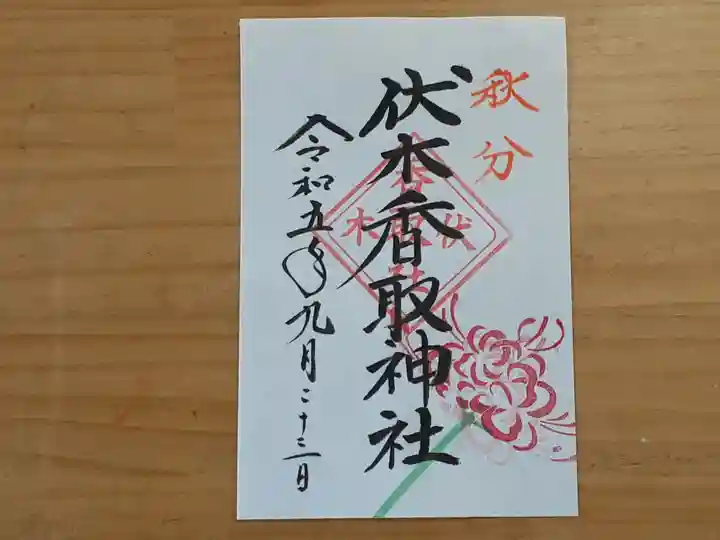 秋分
伏木香取神社
令和五年九月二十三日
伏木
香取